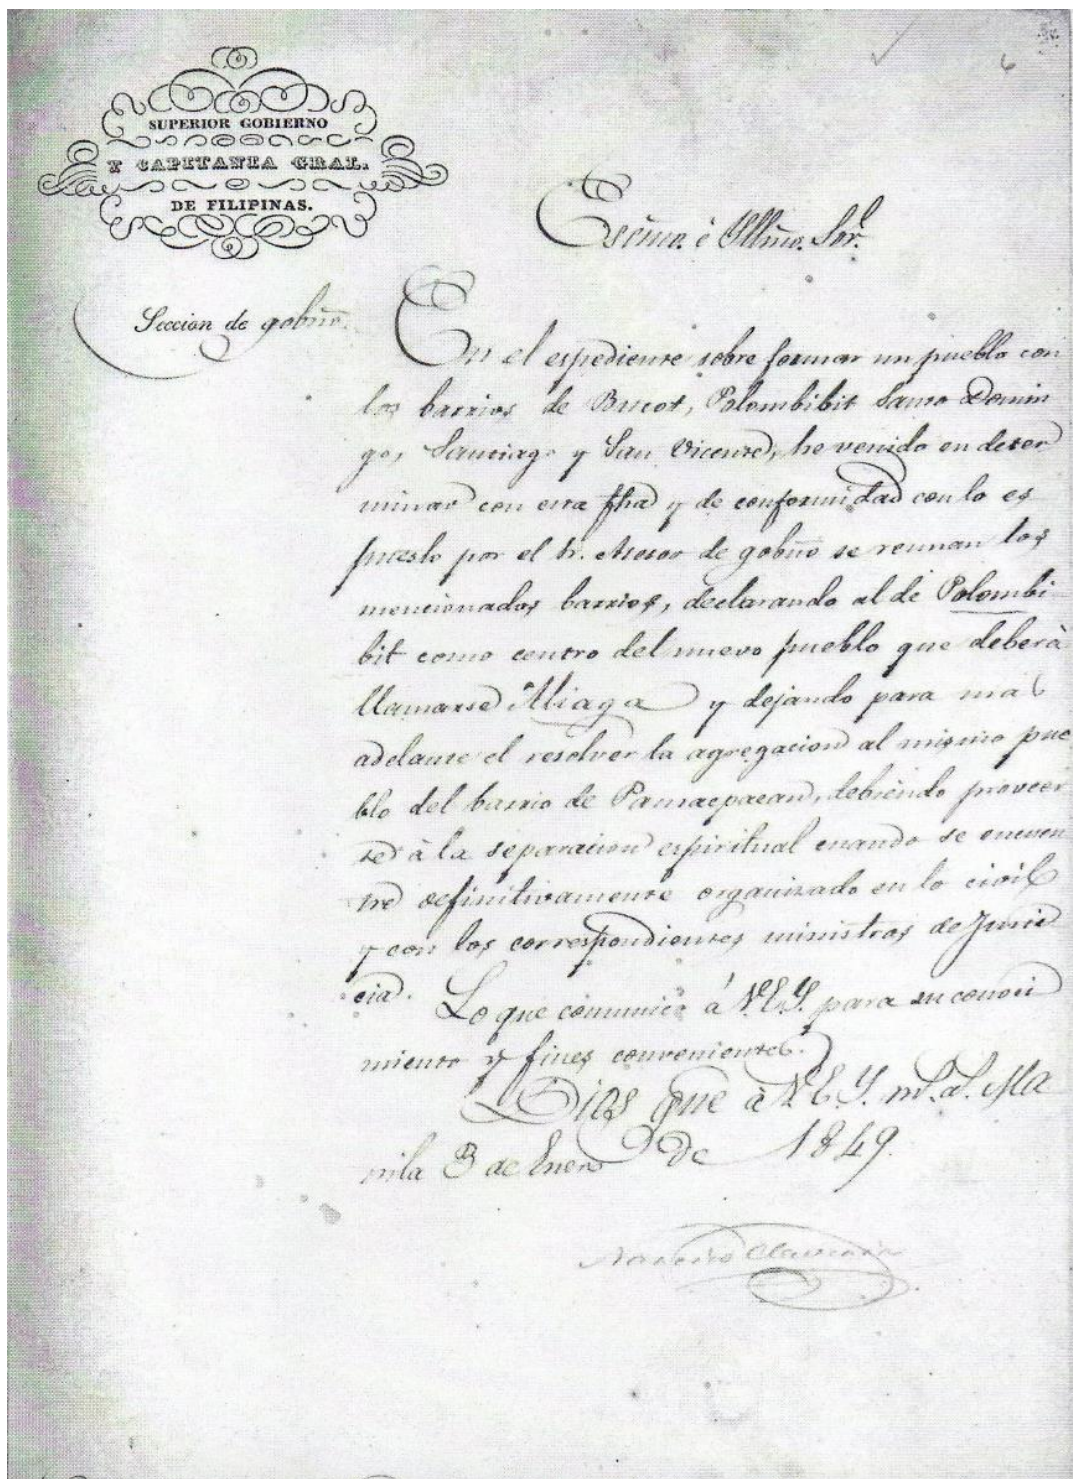 6
SUPERIOR GOBIERNO
Y CAPITANIA GRAL.
DE FILIPINAS.
Escmo. é Illmo. Sor.
Seccion de gobño.
En el espediente sobre formar un pueblo con
los barrios de Bucot, Polombibit Santo Domin
go, Santiago y San Vicente, he venido en deter
minar con esta fha y de conformidad con lo es
puesto por el Sr. Asesor de gobño se reunan los
mencionados barrios, declarando al de Polombi-
bit como centro del nuevo pueblo que deberá
llamarse Aliaga y dejando para mas
adelante el resolver la agregacion al mismo pue
blo del barrio de Pamacpacan, debiendo proveer
se à la separacion espiritual cuando se encuen
tre definitivamente organizado en lo civil
y con los correspondientes ministros de Justi
cia.
Lo que comunico á V.E.Y. para su conoci
miento y fines convenientes.
Dios gue à V.E.Y. m. a. Ma
nila 3 de Enero de 1849.
Narciso Claveria